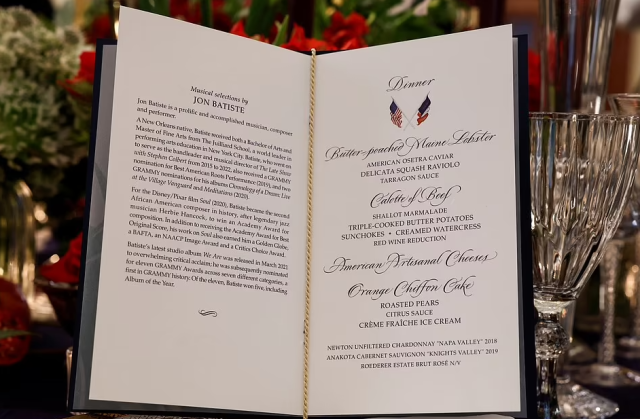 Musical selections by
JON BATISTE
Jon Batiste is a prolific and accomplished musician, composer
and performer.
A New Orleans native, Batiste received both a Bachelor of Arts and
Master of Fine Arts from The Juilliard School, a world leader in
performing arts education in New York City. Batiste, who went on
to serve as the bandleader and musical director of The Late Show
with Stephen Colbert from 2015 to 2022, also received a GRAMMY
nomination for Best American Roots Performance (2019), and two
GRAMMY nominations for his albums Chronology of a Dream: Live
at the Village Vanguard and Meditations (2020).
For the Disney/Pixar film Soul (2020), Batiste became the second
African American composer in history, after legendary jazz
musician Herbie Hancock, to win an Academy Award for
composition. In addition to receiving the Academy Award for Best
Original Score, his work on Soul also earned him a Golden Globe,
a BAFTA, an NAACP Image Award and a Critics Choice Award.
Batiste's latest studio album We Are was released in March 2021
to overwhelming critical acclaim; he was subsequently nominated
for eleven GRAMMY Awards across seven different categories, a
first in GRAMMY history. Of the eleven, Batiste won five, including
Album of the Year.
Dinner
Butter-poached Maine Lobster
AMERICAN OSETRA CAVIAR
DELICATA SQUASH RAVIOLO
TARRAGON SAUCE
Calotte of Beef
SHALLOT MARMALADE
TRIPLE-COOKED BUTTER POTATOES
SUNCHOKES • CREAMED WATERCRESS
RED WINE REDUCTION
American Artisanal Cheeses
Orange Chiffon Cake
ROASTED PEARS
CITRUS SAUCE
CRÈME FRAÎCHE ICE CREAM
NEWTON UNFILTERED CHARDONNAY "NAPA VALLEY" 2018
ANAKOTA CABERNET SAUVIGNON "KNIGHTS VALLEY" 2019
ROEDERER ESTATE BRUT ROSÉ N/V